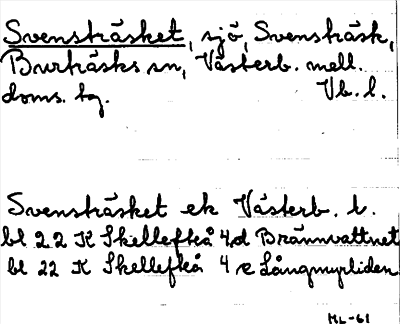 Svensträsket, sjö, Svensträsk,
Burträsks sn, Västerb. mell.
doms. tg. Vb. l.
Svensträsket ek Västerb. l.
bl 22 K Skellefteå 4d Brännvattnet
bl 22 K Skellefteå 4 e Långmyrliden
ML-61